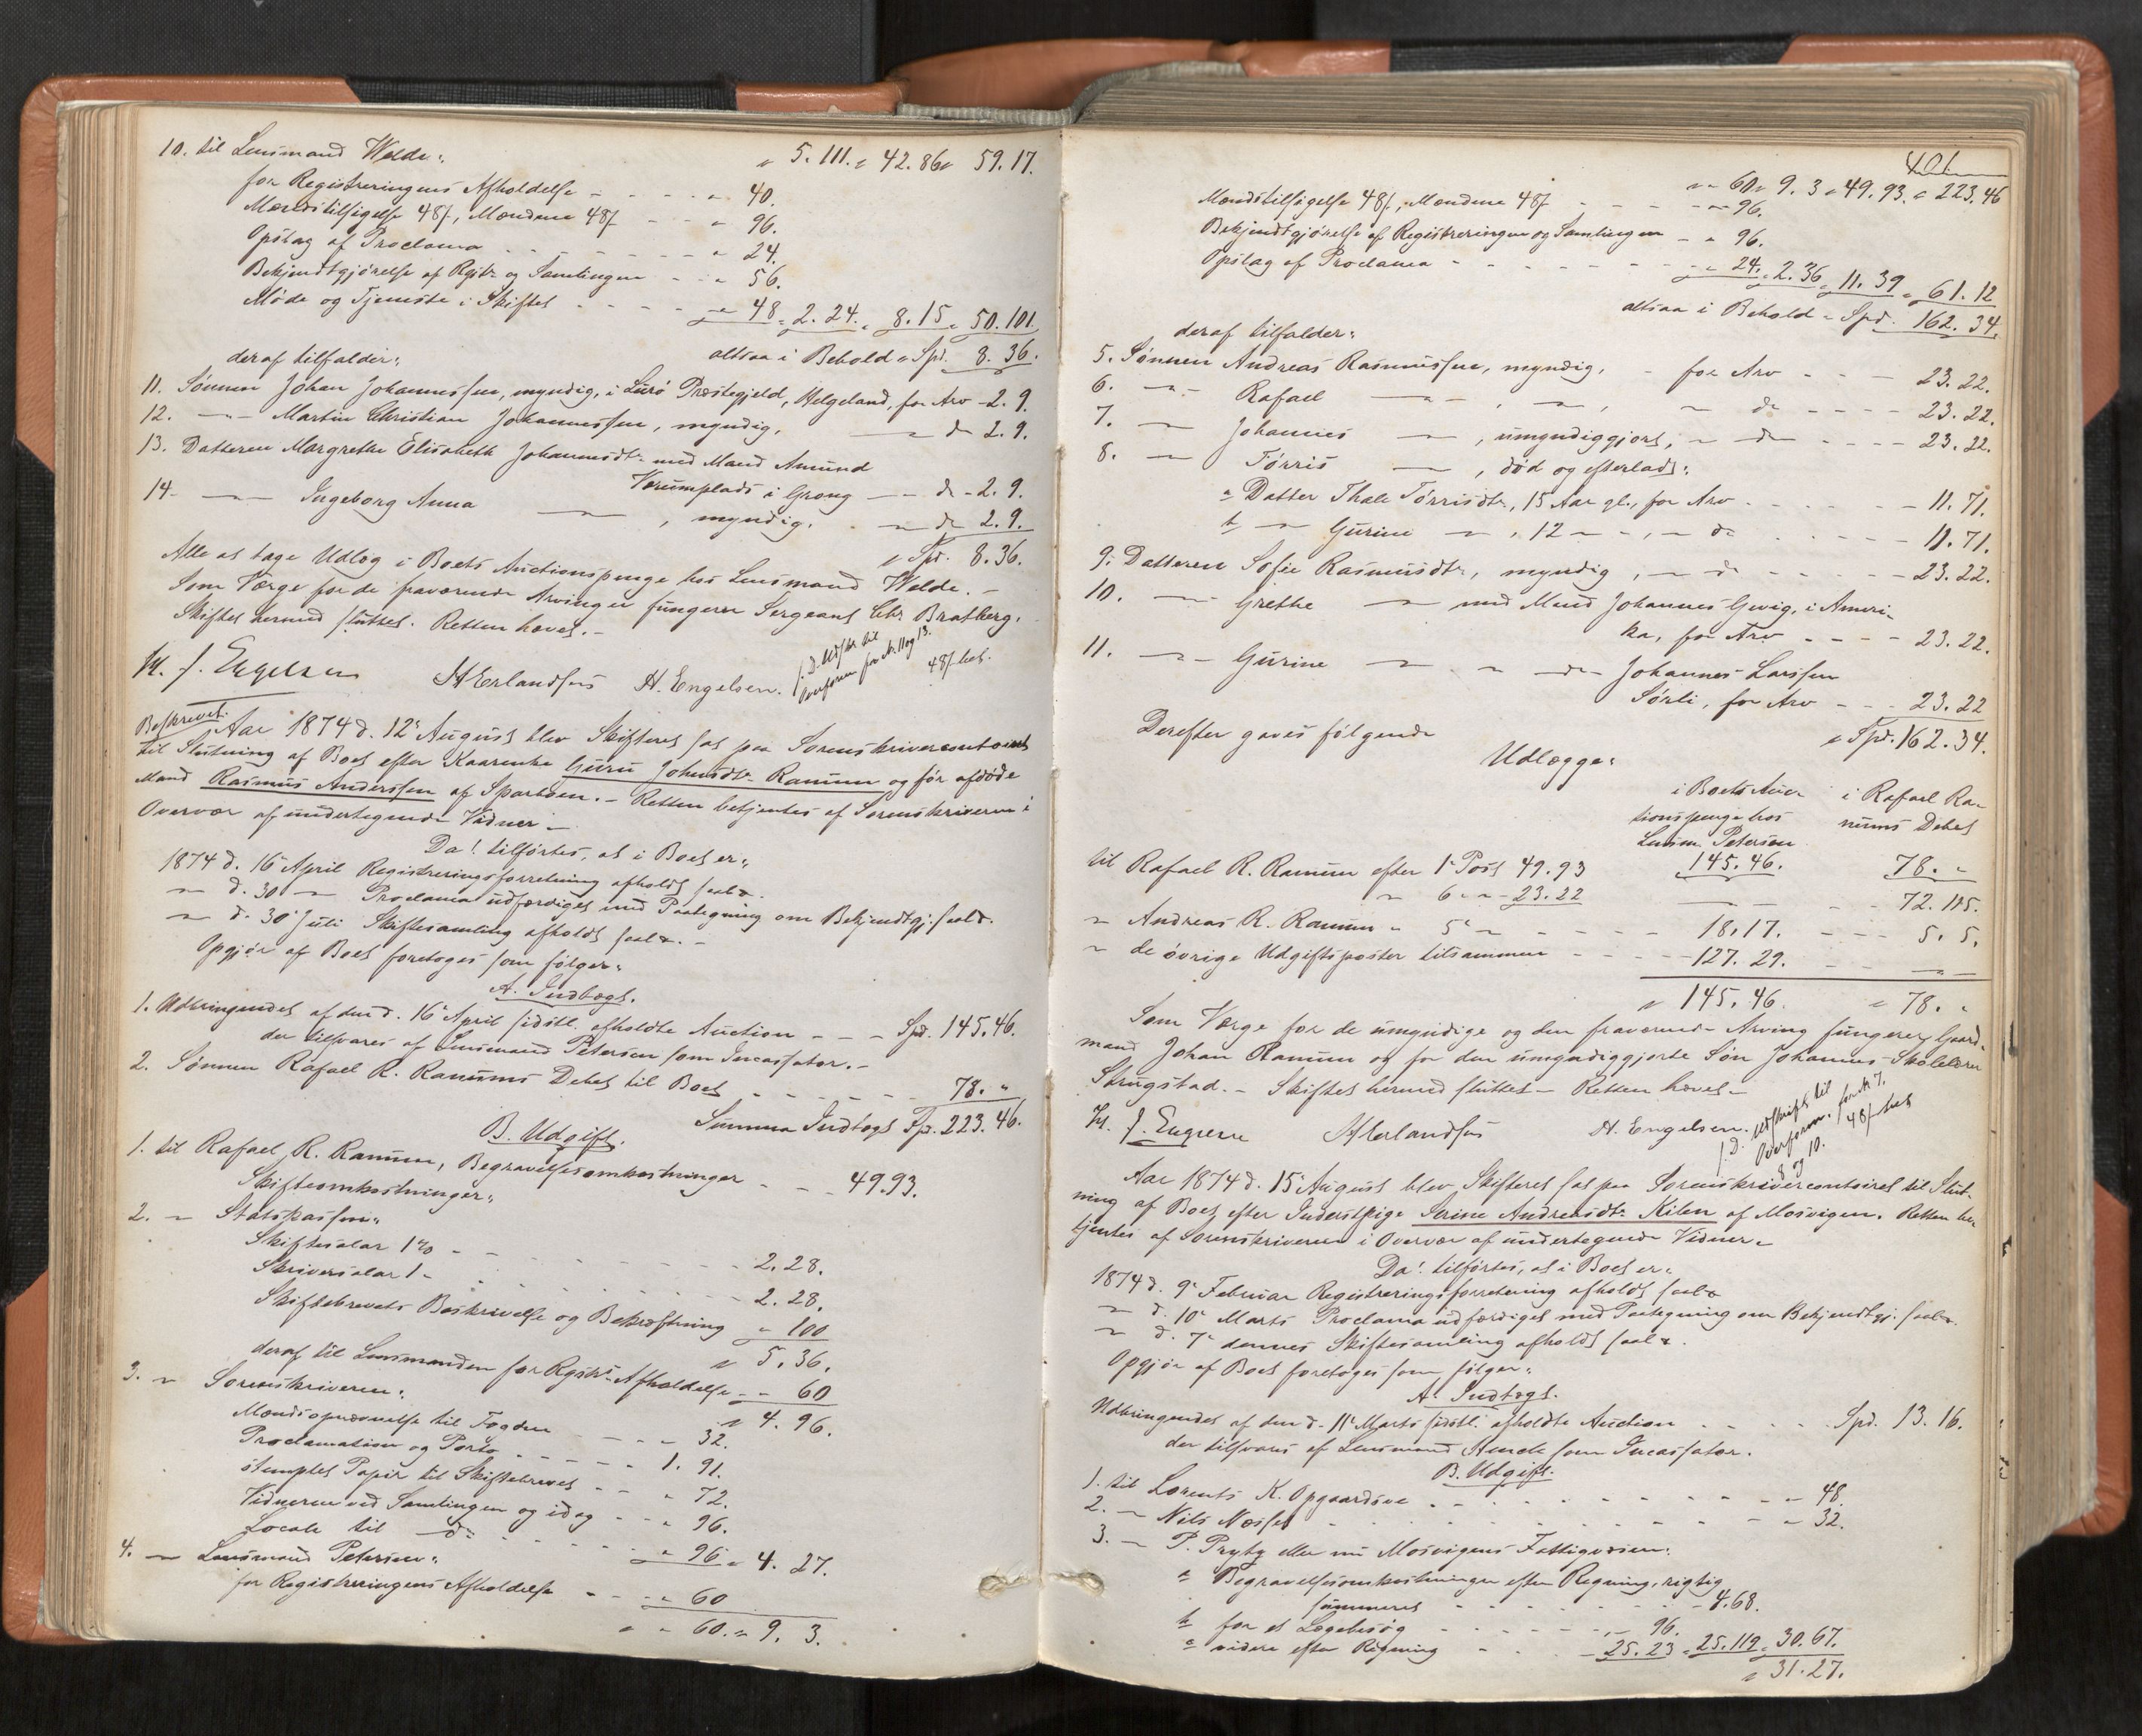 " 5. 111. " 42. 86 " 59. 17.
10. til Lensmand Welde:
for Registreringens Afholdelse - - - " 40.
Mændstilsigelse 48 f, Mændene 48 f - - " 96.
Opslag af Proclama - - - - " 24.
Bekjendtgjørelse af Regstr. og Samlingen - - " 56.
Møde og Tjeneste i Skiftet - - - - " 48 " 2. 24. " 8. 15 " 50. 101
altsaa i Behold " Spd. 8. 36.
deraf tilfalder:
11. Sønnen Johan Johannessen, myndig, i Lurø Præstegjeld, Helgeland, for Arv - 2. 9.
12. — Martin Christian Johannessen, myndig, — do 2. 9.
13. Datteren Margrethe Elisabeth Johannesdtr. med Mand Amund
Værumplads i Grong — do - 2. 9.
14. — Ingeborg Anna — , myndig, — do 2. 9.
" Spd. 8. 36.
Alle at tage Udlæg i Boets Auctionspenge hos Lensmand Welde. -
Som Værge for de fraværende Arvinger fungerer Sergeant Chr. Bratberg.
Skiftet hermed sluttet. Retten hævet. -
J. Engelsen A Erlandsen H. Engelsen.
s. D. Udskr. til
Overform. for No. 11 og 13.
48 f bet.
Beskrevet.
Aar 1874 d. 12te August blev Skifteret sat paa Sorenskrivercontoiret
til Slutning af Boet efter Kaarenke Guru Johnsdtr. Ranum og før afdøde
Mand Rasmus Anderssen af Sparboen. - Retten betjentes af Sorenskriveren i
Overvær af undertegnede Vidner -
Da! tilførtes, at i Boet er:
1874 d. 16 April Registreringsforretning afholdt saal.
— d. 30 — Proclama udfærdiget med Paategning om Bekjendtgj. saal.
— d. 30te Juli Skiftesamling afholdt saal. -
Opgjør af Boet foretoges som følger:
A. Indtægt.
1. Udbringendet af den d. 16te April sidstl. afholdte Auction - - - Spd. 145. 46.
der tilsvares af Lensmand Petersen som Incassator. -
2. Sønnen Rafael R. Ranums Debet til Boet - - - - 78. "
Summa Indtægt Sp. 223. 46.
B. Udgift.
1. til Rafael R. Ranum, Begravelsesomkostninger - - - 49. 93.
Skifteomkostninger:
2. " Statskassen:
Skiftesalar 1% - - - - - 2. 28.
Skriversalar 1 - - - - - 2. 28.
Skiftebrevets Beskrivelse og Bekræftning " 100
" 5. 36.
deraf til Lensmanden for Regstr. Afholdelse - " 60
" 4. 96.
3. " Sorenskriveren:
Mændsopnævnelse til Fogden - - - 32.
Proclamation og Porto - - - - 1. 91.
stemplet Papir til Skiftebrevet - - - " 72.
Vidnerne ved Samlingen og idag - - " 96.
Locale til — do - - - - " 96 " 4. 27.
4. — Lensmand Petersen:
for Registreringens Afholdelse - - - " 60
" " 60. " 9. 3.
401
" " 60 " 9. 3 " 49. 93. " 223. 46
Mændstilsigelse 48 f, Mændene 48 f - - - - " 96.
Bekjendtgjørelse af Registreringen og Samlingen - " 96.
Opslag af Proclama - - - - - - " 24. " 2. 36 " 11. 39 " 61. 12
altsaa i Behold " Spd. 162. 34.
deraf tilfalder:
5. Sønnen Andreas Rasmussen, myndig, - for Arv - - - 23. 22.
6. — Rafael — , — , — do - - - - 23. 22.
7. — Johannes — , umyndiggjort, — do - - - - 23. 22.
8. — Tørris — , død og efterladt:
a Datter Thale Tørrisdtr., 15 Aar gl., for Arv - - - - - 11. 71.
b — Gurine — , 12 — - , — do - - - - - 11. 71.
9. Datteren Sofie Rasmusdtr., myndig, — do - - - - - 23. 22.
10. — Grethe — med Mand Johannes Gevig, i Ameri-
ka, for Arv - - - - 23. 22.
11. — Gurine — " — do Johannes Larssen
Sørli, for Arv - - - 23. 22
" Spd. 162. 34.
Derefter gaves følgende
Udlægge:
i Boets Auc- i Rafael Ra-
tionspenge hos nums Debet
Lensm. Petersen
145. 46. 78. "
til Rafael R. Ranum efter 1te Post 49. 93
" 6 — " 23. 22 — - - 72. 115.
" Andreas R. Ranum " 5te — - - - - 18. 17. - - - 5. 5.
" de øvrige Udgiftsposter tilsammen - - - - 127. 29. - - —
" 145. 46. " 78. "
Som Værge for de umyndige og den fraværende Arving fungerer Gaard-
mand Johan Ranum og for den umyndiggjorte Søn Johannes Skolelærer
Strugstad. - Skiftet hermed sluttet - Retten hævet -
J. Engelsen A Erlandsen H. Engelsen.
s. D. Udskrift til
Overform. for No. 7,
8 og 10. 48 f bet.
Aar 1874 d. 15te August blev Skifteret sat paa Sorenskrivercontoiret til Slut-
ning af Boet efter Inderstpige Serine Andreasdtr. Kilen af Mosvigen. Retten be-
tjentes af Sorenskriveren i Overvær af undertegnede Vidner -
Da! tilførtes, at i Boet er:
1874 d. 9te Februar Registreringsforretning afholdt saal.
— d. 10te Marts Proclama udfærdiget med Paategning om Bekjendtgj. saal.
— d. 7te dennes Skiftesamling afholdt saal.
Opgjør af Boet foretoges som følger:
A. Indtægt.
Udbringendet af den d. 11te Marts sidstl. afholdte Auction - - - - Spd. 13. 16.
der tilsvares af Lensmand som Incassator.
B. Udgift.
1. til Lorents K. Opgaardsve - - - - - - - - " 48.
2. — Nils Næsset - - - - - - - - " 32.
3. — P. Prytz eller nu Mosvigens Fattigvæsen:
a Begravelsesomkostninger efter Regning, rigtig
summeret - - - - - - 4. 68.
b for et Lægebesøg - - - - - " 96.
c videre efter Regning - - - 25. 23 " 25. 119 " 30. 67.
" 31. 27.